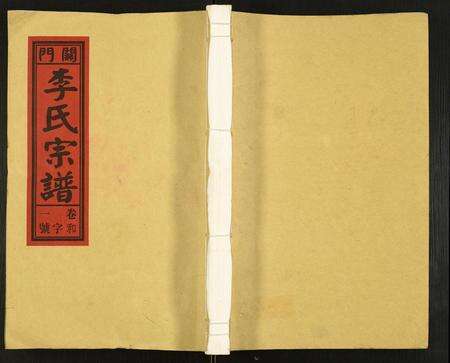 關門
李氏宗譜
卷和
字
一號